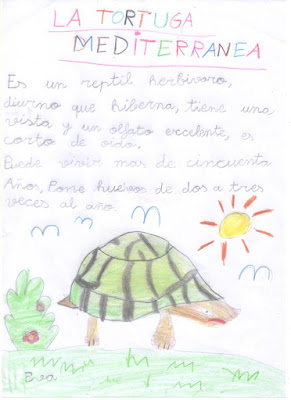 LA TORTUGA
MEDITERRANEA
Es un reptil herbivoro,
diurno que hiberna, tiene una
vista y un olfato excelente, es
corto de oido.
Puede vivir mas de cincuenta
Años, Pone huevos de dos a tres
veces al año.